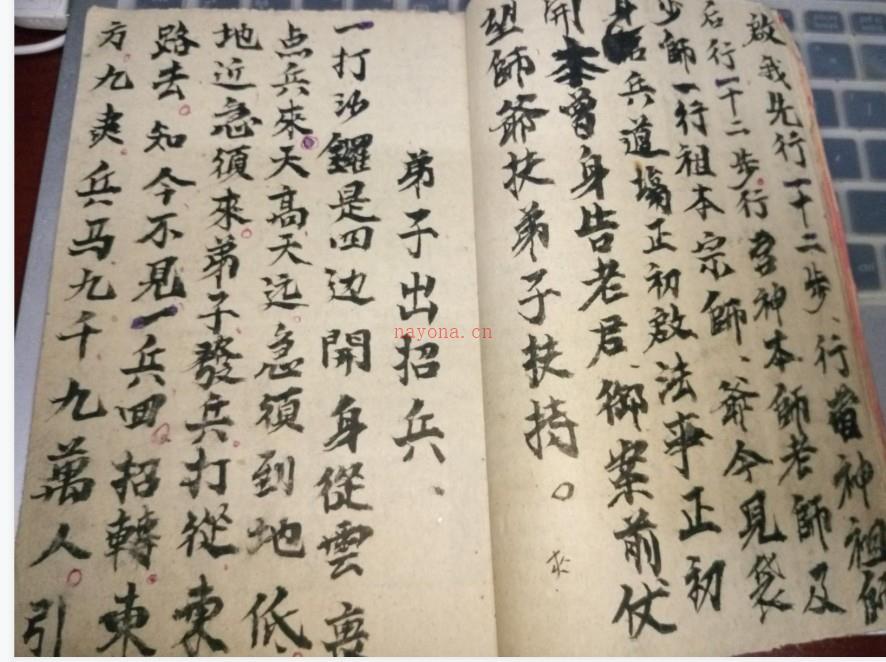 啟我先行一十二步、行神祖師
后行一十二步行神本師老師及
少師一行祖本宗師、爺今見袋
身招兵道場正初啟法事正初
開本曾身告老君御案前仗
祖師爺扶弟子扶持。
弟子出招兵、
一打沙鑼是四边開身從雲裏
点兵來天高天远急須到地低
地近急須來弟子發兵打從東
路去知今不見一兵回招轉東
方九夷兵马九千九萬人引
nayona.cn